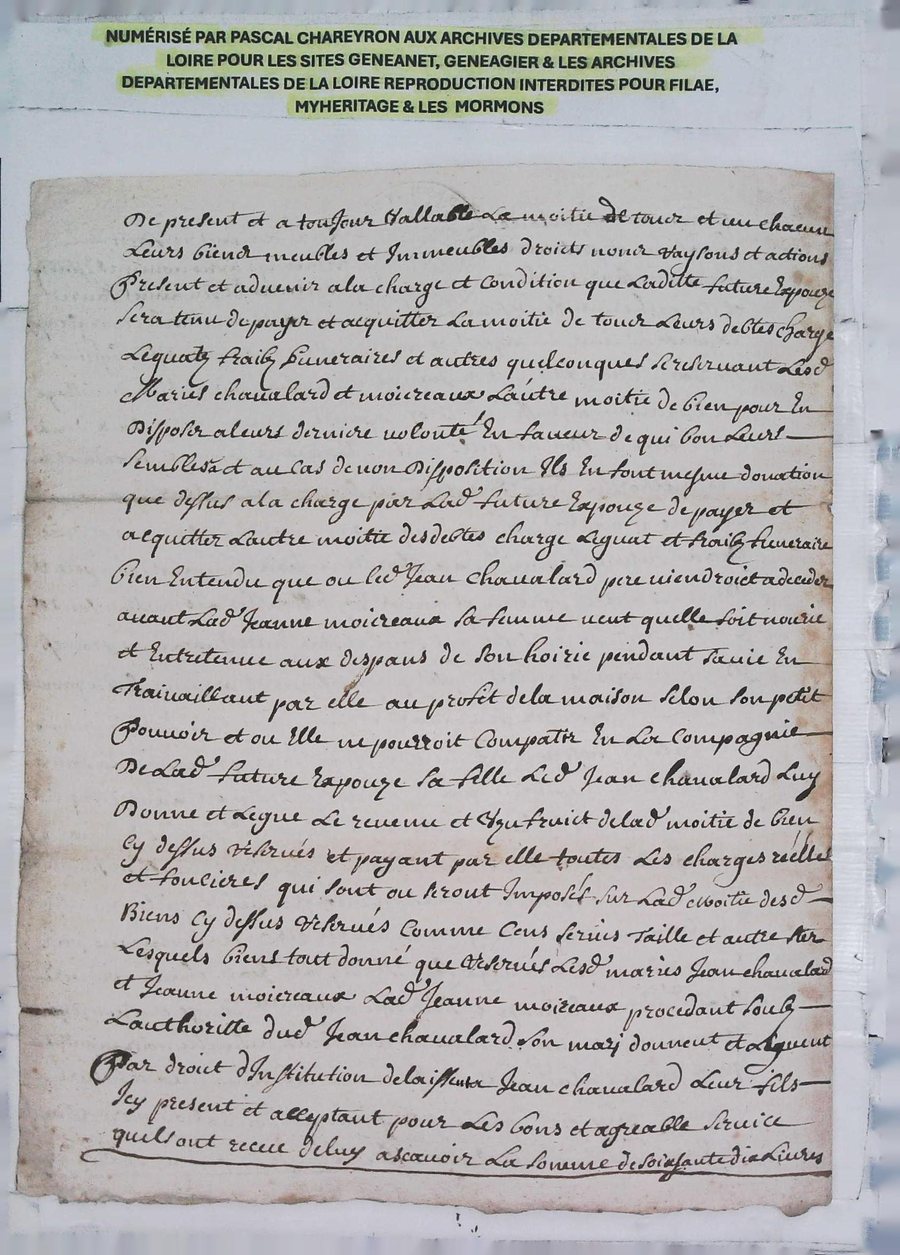 NUMÉRISÉ PAR PASCAL CHAREYRON AUX ARCHIVES DEPARTEMENTALES DE LA
LOIRE POUR LES SITES GENEANET, GENEAGIER & LES ARCHIVES
DEPARTEMENTALES DE LA LOIRE REPRODUCTION INTERDITES POUR FILAE,
MYHERITAGE & LES MORMONS
De present et a toujour vallable La moitié de tour et un chacun
Leurs biens meubles et Immeubles droicts noms raysons et actions
Present et advenir a la charge et condition que Laditte future Expouze
sera tenu de payer et acquitter La moitie de tour Leurs debtes charge
Leguatz fraitz funeraires et autres quelconques se reservant Lesd
Mariés chavalard et moicreaux L'autre moitié de bien pour En
Disposer a leurs derniere volonté En faveur de qui bon Leurs
semblera et au cas de non Disposition Ils En font mesme donation
que dessus a la charge par Lad future Expouze de payer et
acquitter Lautre moitié des debtes charge Leguat et fraitz funeraire
bien Entendu que ou led Jean chavalard pere viendroict a deceder
avant Lad Jeanne moicreaux sa femme veut quelle soit nourie
et Entretenue aux despans de son hoirie pendant sa vie En
Travaillant par elle au profit de la maison selon son petit
Pouvoir et ou Elle ne pourroit Compatir En La Compagnie
De Lad future Expouze sa fille Led Jean chavalard Luy
Donne et Legue Le revenu et Uzufruict de lad moitié de bien
Cy dessus reservés et payant par elle toutes Les charges réelles
et foncieres qui sont ou seront Imposés sur Lad moitié desd
Biens Cy dessus reservés Comme Cens servis taille et autre
Lesquels biens tout donné que reservés Lesd mariés Jean chavalard
et Jeanne moicreaux Lad Jeanne moireaux procedant soubz
Lauthoritte dud Jean chavalard son mary donnent et Leguent
Par droit d'Institution delaissent a Jean chavalard Leur fils
Icy present et acceptant pour Les bons et agreable service
quils ont receu de luy a scavoir La somme de soixante dix Livres